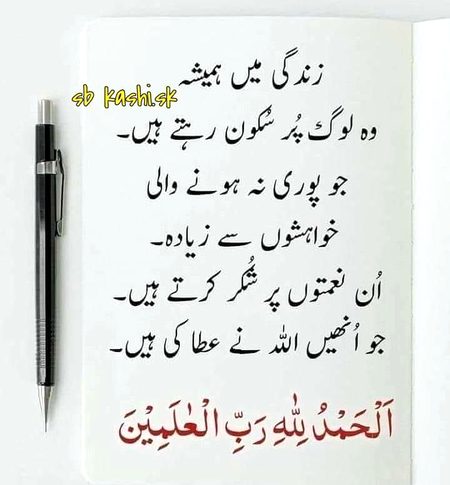 زندگی میں ہمیشہ
sb kashi.sk
وہ لوگ پُر سُکون رہتے ہیں۔
جو پوری نہ ہونے والی
خواہشوں سے زیادہ۔
اُن نعمتوں پر شُکر کرتے ہیں۔
جو اُنھیں اللہ نے عطا کی ہیں۔
اَلْحَمْدُ لِلّٰهِ رَبِّ الْعٰلَمِيْنَ